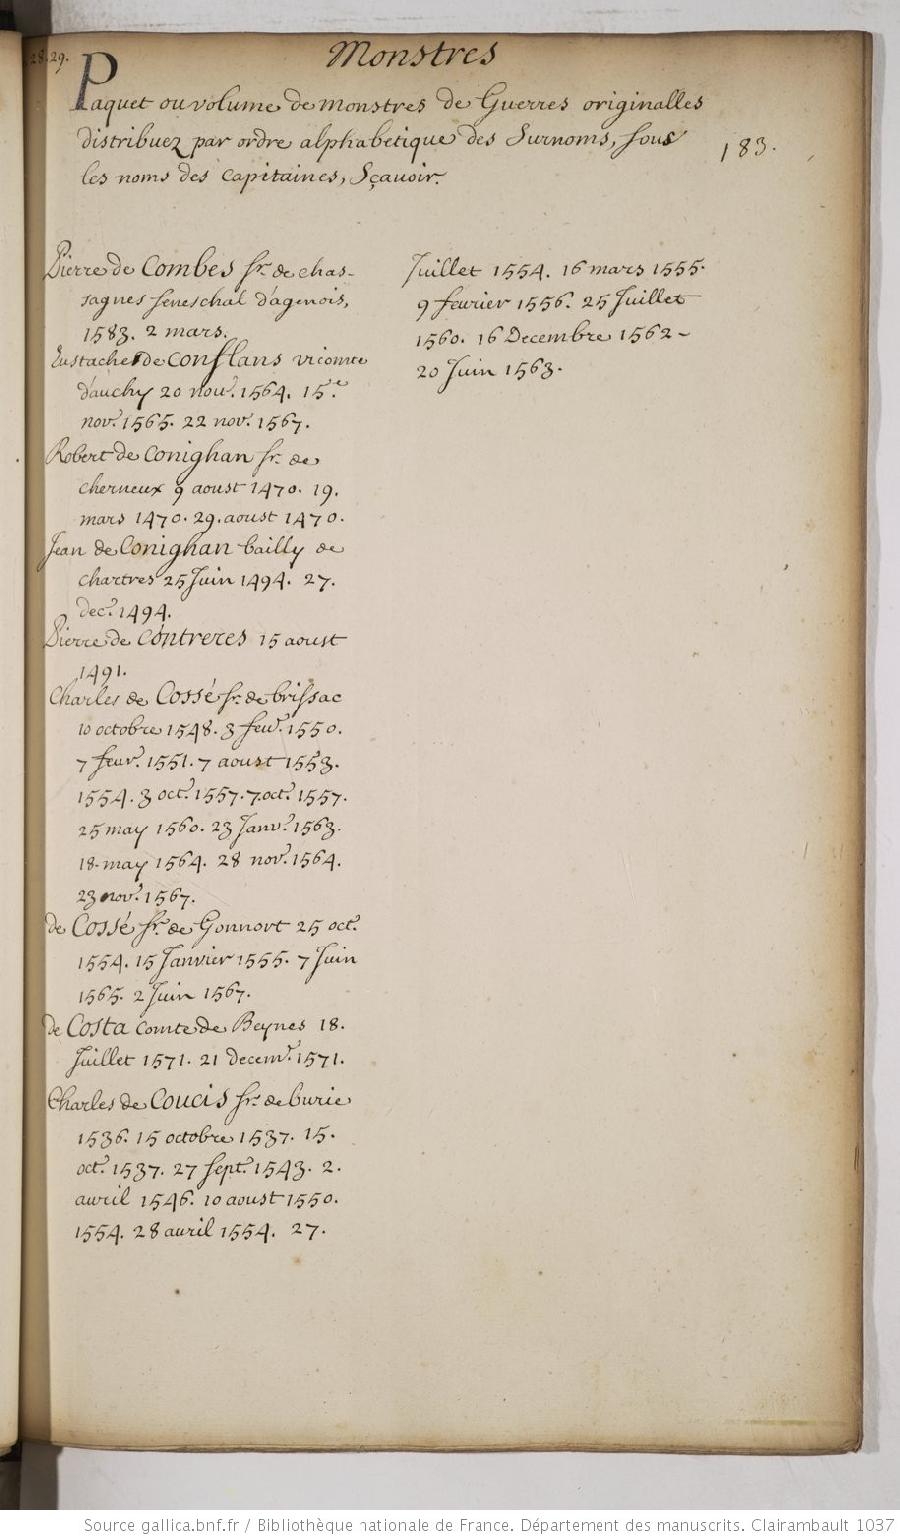 28.29.
Monstres
Paquet ou volume de monstres de Guerres originalles
distribuez par ordre alphabetique des Surnoms, sous
les noms des Capitaines, Sçavoir.
183.
Pierre de Combes sr. de chas-
sagnes seneschal d'agenois,
1583. 2 mars.
Eustache de Conflans vicomte
d'auchy 20 nov.e 1564. 15.e
nov.e 1565. 22 nov.e 1567.
Robert de Conighan sr. de
cherneux 9 aoust 1470. 19.
mars 1470. 29. aoust 1470.
Jean de Conighan bailly de
chartres 25 Juin 1494. 27.
dec.e 1494.
Pierre de Contreres 15 aoust
1491.
Charles de Cossé sr. de brissac
10 octobre 1548. 3 feur.e 1550.
7 feur.e 1551. 7 aoust 1553.
1554. 3 oct.e 1557. 7. oct.e 1557.
25 may 1560. 23 Janv.e 1563.
18. may 1564. 28 nov.e 1564.
23 nov.e 1567.
de Cossé sr. de Gonnort 25 oct.e
1554. 15 Janvier 1555. 7 Juin
1565. 2 Juin 1567.
de Costa Comte de Beynes 18.
Juillet 1571. 21 decem.e 1571.
Charles de Coucis sr. de burie
1536. 15 octobre 1537. 15.
oct.e 1537. 27 sept.e 1543. 2.
auril 1546. 10 aoust 1550.
1554. 28 auril 1554. 27.
Juillet 1554. 16 mars 1555.
9 feurier 1556. 25 Juillet
1560. 16 Decembre 1562-
20 Juin 1563.
Source gallica.bnf.fr / Bibliothèque nationale de France. Département des manuscrits. Clairambault 1037